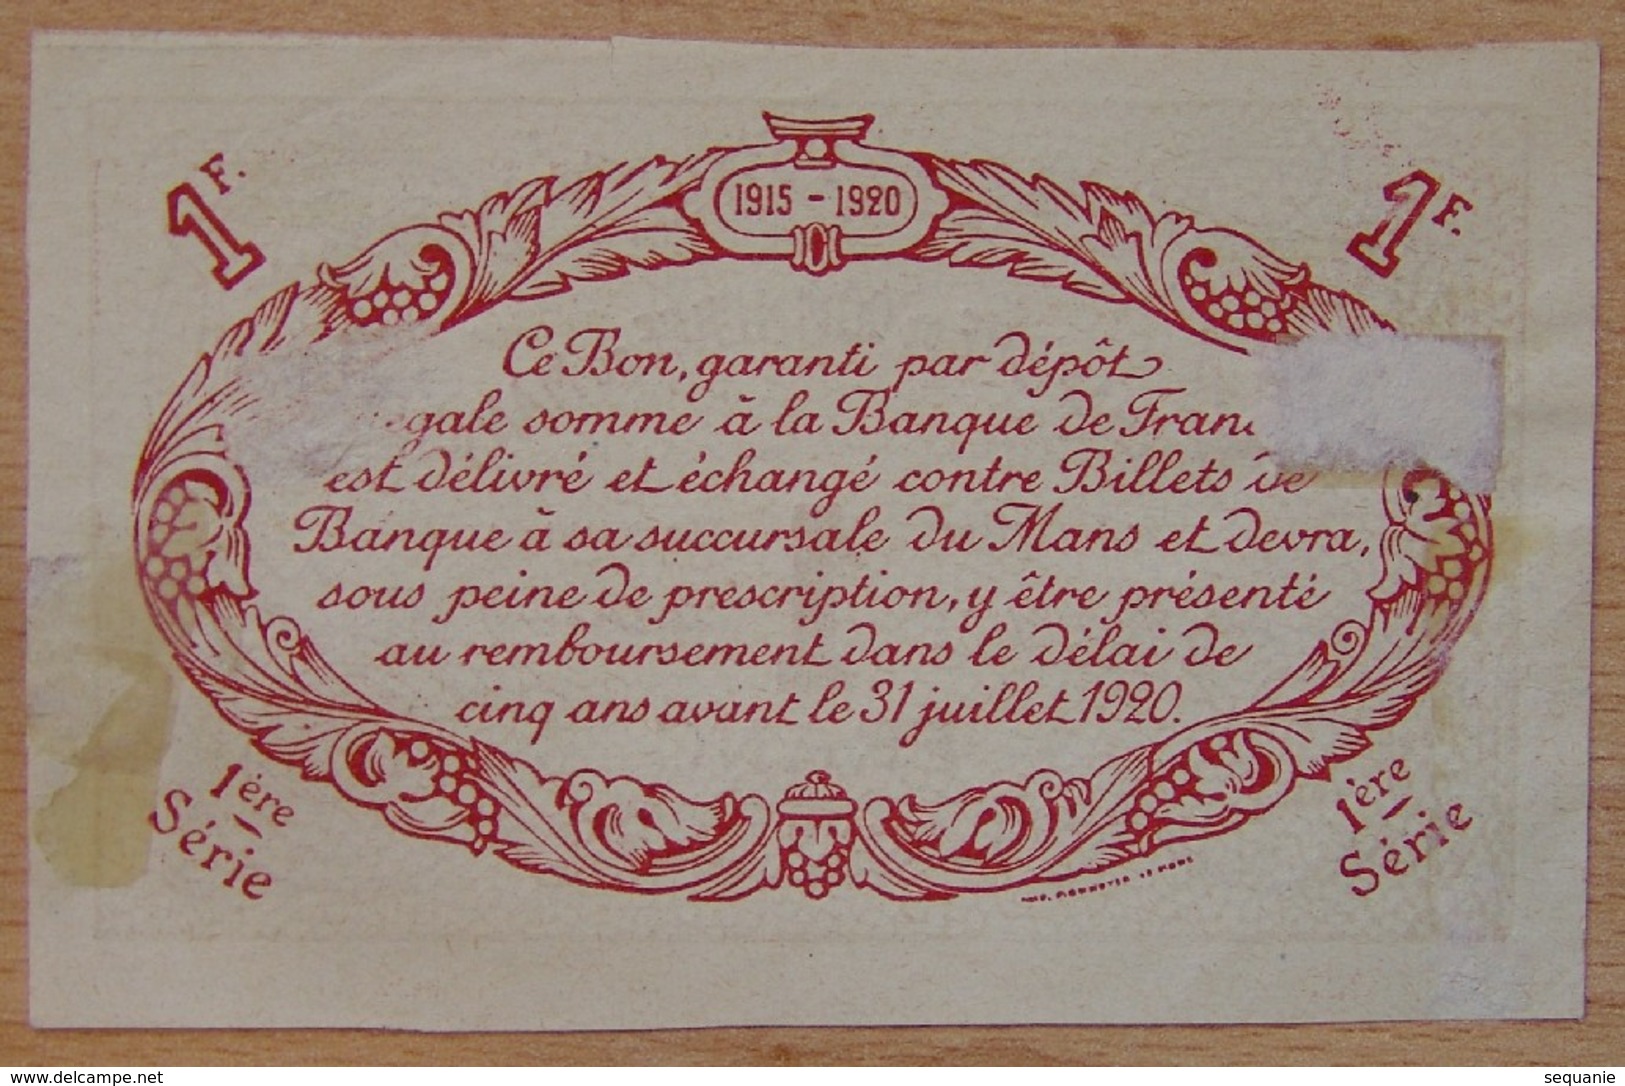 1F.
1F.
1915 - 1920
Ce Bon, garanti par dépôt
égale somme à la Banque de Fran
est délivré et échangé contre Billets de
Banque à sa succursale du Mans et devra,
sous peine de prescription, y être présenté
au remboursement dans le délai de
cinq ans avant le 31 juillet 1920.
1ère
Série
1ère
Série
IMP. MONNOYER LE MANS
www.delcampe.net
sequanie